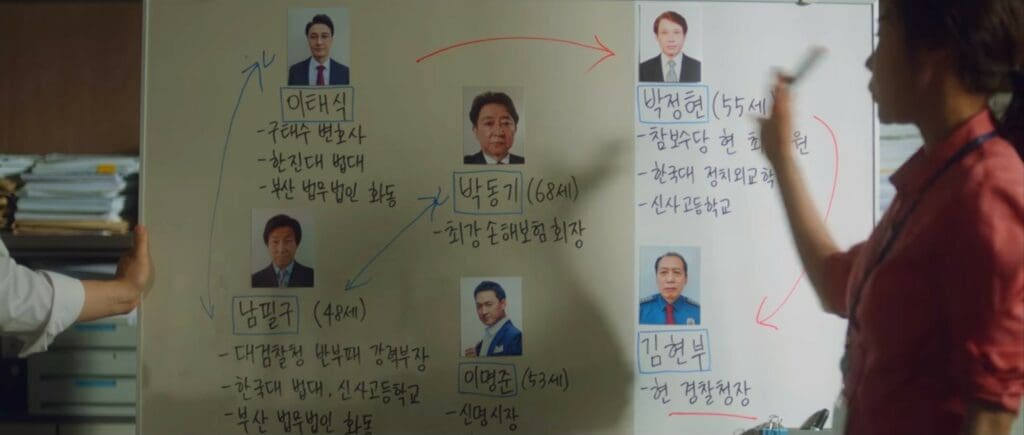 이태식
-구태수 변호사
-한진대 법대
-부산 법무법인 화동
박동기 (68세)
-최강손해보험회장
박정현 (55세
-참보수당 현 최 원
-한국대 정치외교학
-신사고등학교
남필구 (48세)
-대검찰청 반부패 강력부장
-한국대 법대, 신사고등학교
-부산 법무법인 화동
이명준 (53세)
-신명시장
김현부
-현 경찰청장